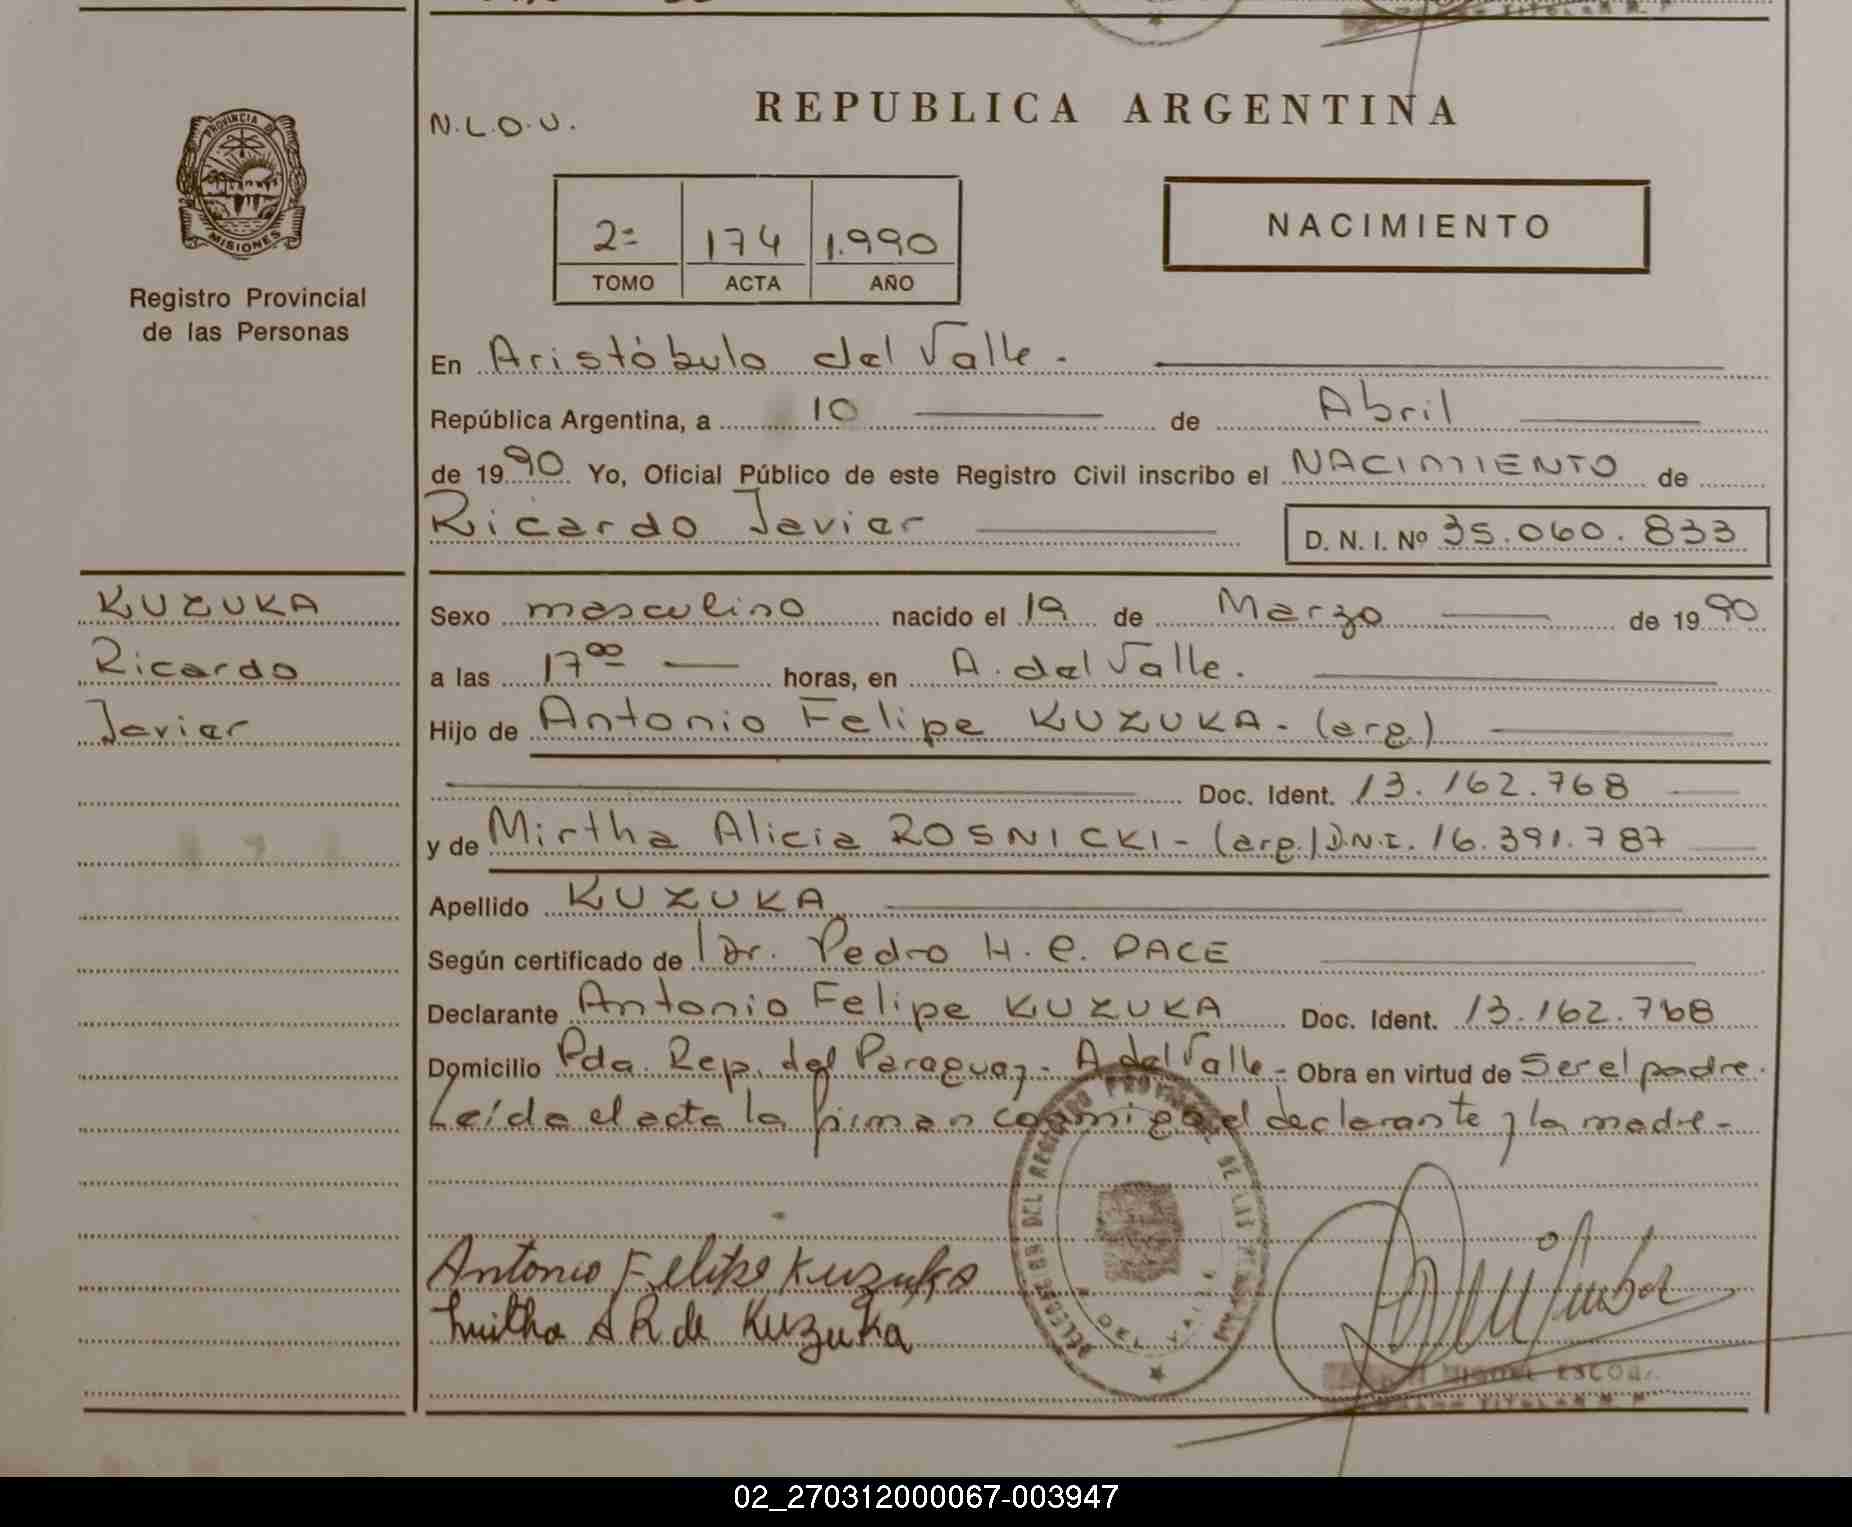 PROVINCIA DE
MISIONES
Registro Provincial
de las Personas
N.L.O.U.
REPUBLICA ARGENTINA
2=
174
1.990
TOMO
ACTA
AÑO
NACIMIENTO
En Aristóbulo del Valle.
República Argentina, a 10 de Abril
de 1990 Yo, Oficial Público de este Registro Civil inscribo el NACIMIENTO de
Ricardo Javier
D. N. I. Nº 35.060.833
KUZUKA
Ricardo
Javier
Sexo masculino nacido el 19 de Marzo de 1990
a las 17 00 horas, en A. del Valle.
Hijo de Antonio Felipe KUZUKA - (arg.)
Doc. Ident. 13.162.768
y de Mirtha Alicia ROSNICKI - (arg.) D.N.I. 16.391.787
Apellido KUZUKA
Según certificado de Dr. Pedro H. C. PACE
Declarante Antonio Felipe KUZUKA Doc. Ident. 13.162.768
Domicilio Pda. Rep. del Paraguay - A. del Valle - Obra en virtud de Ser el padre.
Leída el acta la firman conmigo el declarante y la madre -
DEL REGISTRO PROVINCIAL DE LAS
DEL VALLE
Antonio Felipe Kuzuka
Mirtha A R de Kuzuka
MIGUEL
TITULAR R. P.
02_270312000067-003947